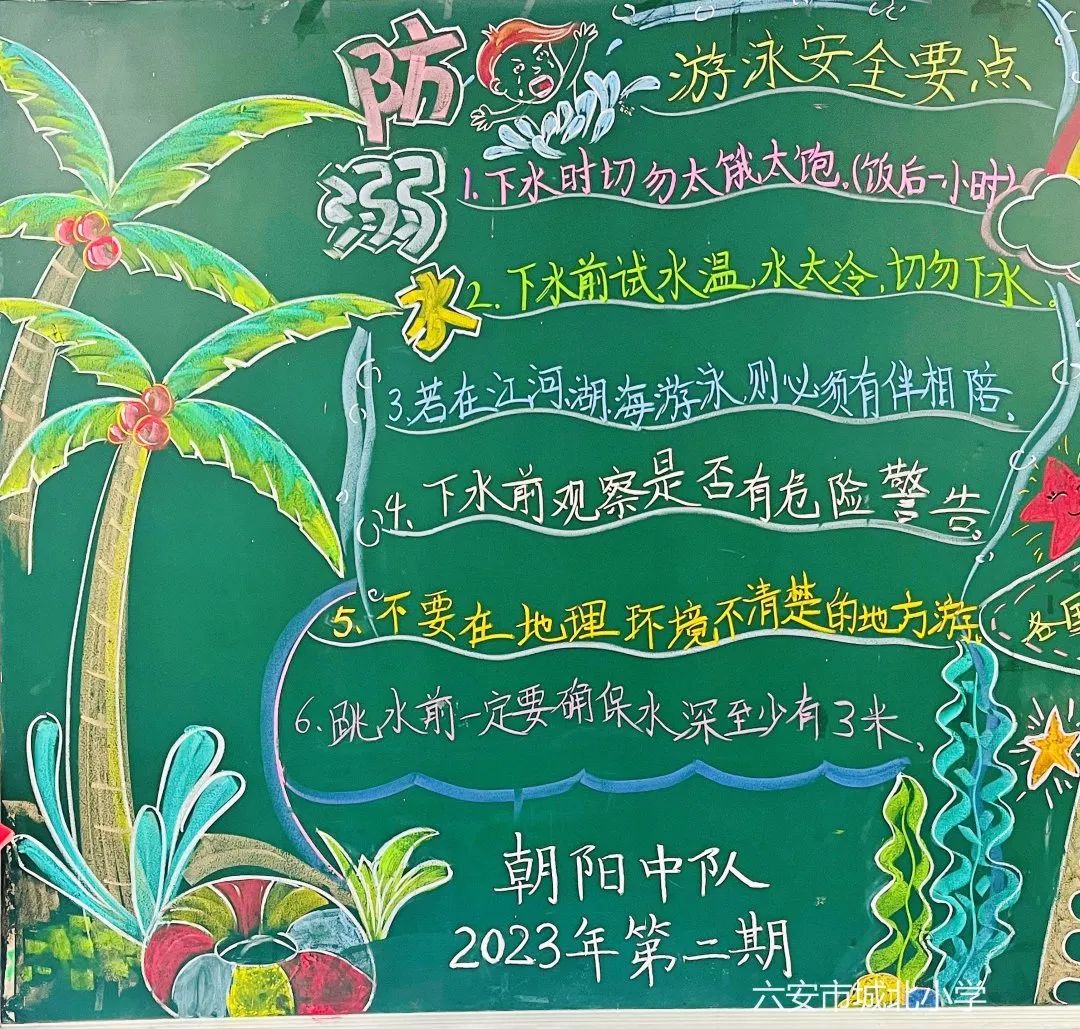 防溺水
游泳安全要点
1.下水时切勿太饿太饱,(饭后一小时)
2.下水前试水温,水太冷,切勿下水。
3.若在江河、湖、海游泳,则必须有伴相陪、
4、下水前观察是否有危险警告。
5、不要在地理环境不清楚的地方游、
6、跳水前一定要确保水深至少有3米、
各国
朝阳中队
2023年第二期
六安市城北小学